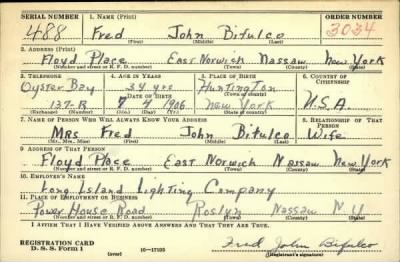 SERIAL NUMBER 1. NAME (Print) ORDER NUMBER
488 Fred John Bifulco 3034
(First) (Middle) (Last)
2. ADDRESS (Print)
Floyd Place East Norwich Nassau New York
(Number and street or R. F. D. number) (Town) (County) (State)
3. TELEPHONE 4. AGE IN YEARS 5. PLACE OF BIRTH 6. COUNTRY OF CITIZENSHIP
Oyster Bay 34 yrs Huntington
DATE OF BIRTH (Town or county)
137-R 7 4 1906 New York U.S.A
(Exchange) (Number) (Mo.) (Day) (Yr.) (State or country)
7. NAME OF PERSON WHO WILL ALWAYS KNOW YOUR ADDRESS 8. RELATIONSHIP OF THAT PERSON
Mrs Fred John Bifulco Wife
(Mr., Mrs., Miss) (First) (Middle) (Last)
9. ADDRESS OF THAT PERSON
Floyd Place East Norwich Nassau New York
(Number and street or R. F. D. number) (Town) (County) (State)
10. EMPLOYER'S NAME
Long Island Lighting Company
11. PLACE OF EMPLOYMENT OR BUSINESS
Power House Road Roslyn Nassau N Y
(Number and street or R. F. D. number) (Town) (County) (State)
I AFFIRM THAT I HAVE VERIFIED ABOVE ANSWERS AND THAT THEY ARE TRUE.
REGISTRATION CARD
D. S. S. FORM 1 (over) 16—17105 Fred John Bifulco
(Registrant's signature)